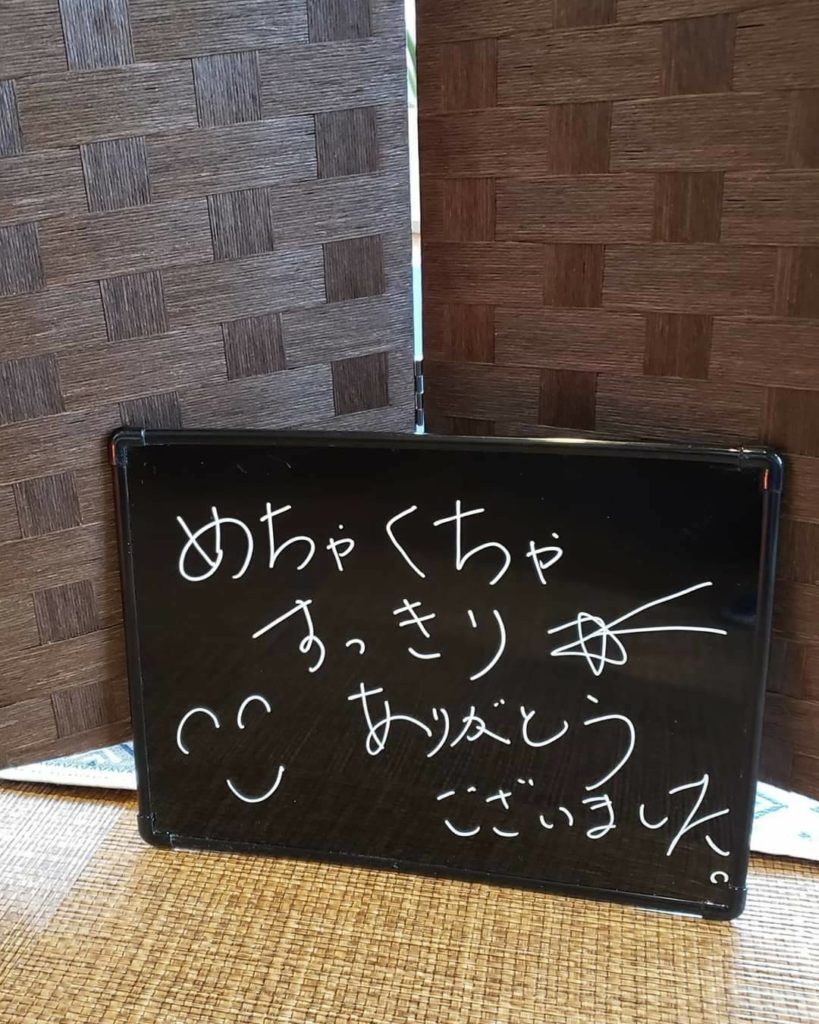 めちゃくちゃ
すっきり
ありがとう
ございました。